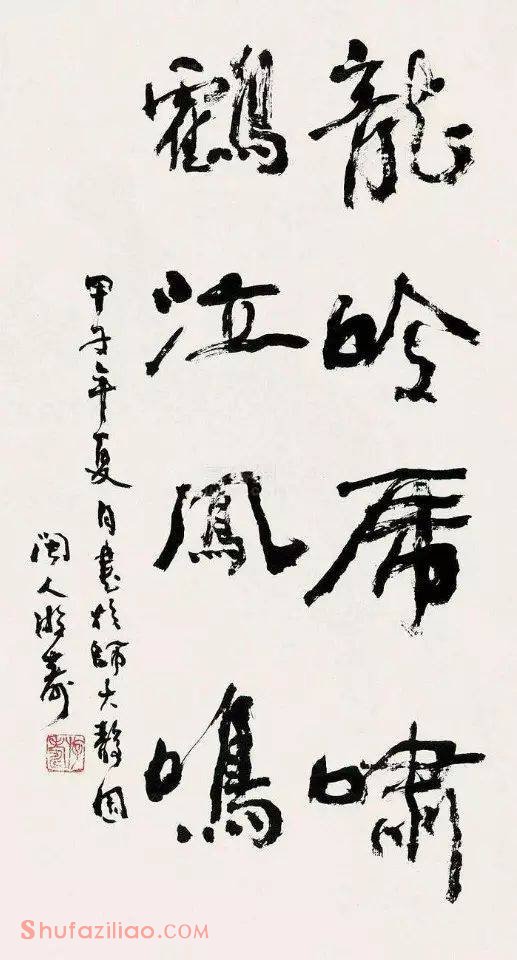 龍吟虎嘯
鸖泣鳳鳴
甲子年夏月書於師大静园
閩人游壽
Shufaziliao.COM